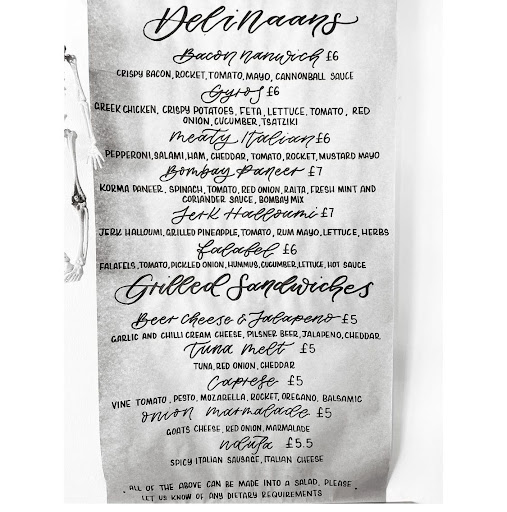 Delinaans
Bacon nanwich £6
CRISPY BACON, ROCKET, TOMATO, MAYO, CANNONBALL SAUCE
Gyros £6
GREEK CHICKEN, CRISPY POTATOES, FETA, LETTUCE, TOMATO, RED
ONION, CUCUMBER, TSATZIKI
Meaty Italian £6
PEPPERONI, SALAMI, HAM, CHEDDAR, TOMATO, ROCKET, MUSTARD MAYO
Bombay Paneer £7
KORMA PANEER, SPINACH, TOMATO, RED ONION, RAITA, FRESH MINT AND
CORIANDER SAUCE, BOMBAY MIX
Jerk Halloumi £7
JERK HALLOUMI, GRILLED PINEAPPLE, TOMATO, RUM MAYO, LETTUCE, HERBS
falafel £6
FALAFELS, TOMATO, PICKLED ONION, HUMMUS, CUCUMBER, LETTUCE, HOT SAUCE
Grilled Sandwiches
Beer Cheese & Jalapeno £5
GARLIC AND CHILLI CREAM CHEESE, PILSNER BEER, JALAPENO, CHEDDAR
Tuna Melt £5
TUNA, RED ONION, CHEDDAR
Caprese £5
VINE TOMATO, PESTO, MOZARELLA, ROCKET, OREGANO, BALSAMIC
onion marmalade £5
GOATS CHEESE, RED ONION, MARMALADE
nduja £5.5
SPICY ITALIAN SAUSAGE, ITALIAN CHEESE
• ALL OF THE ABOVE CAN BE MADE INTO A SALAD, PLEASE •
LET US KNOW OF ANY DIETARY REQUIREMENTS